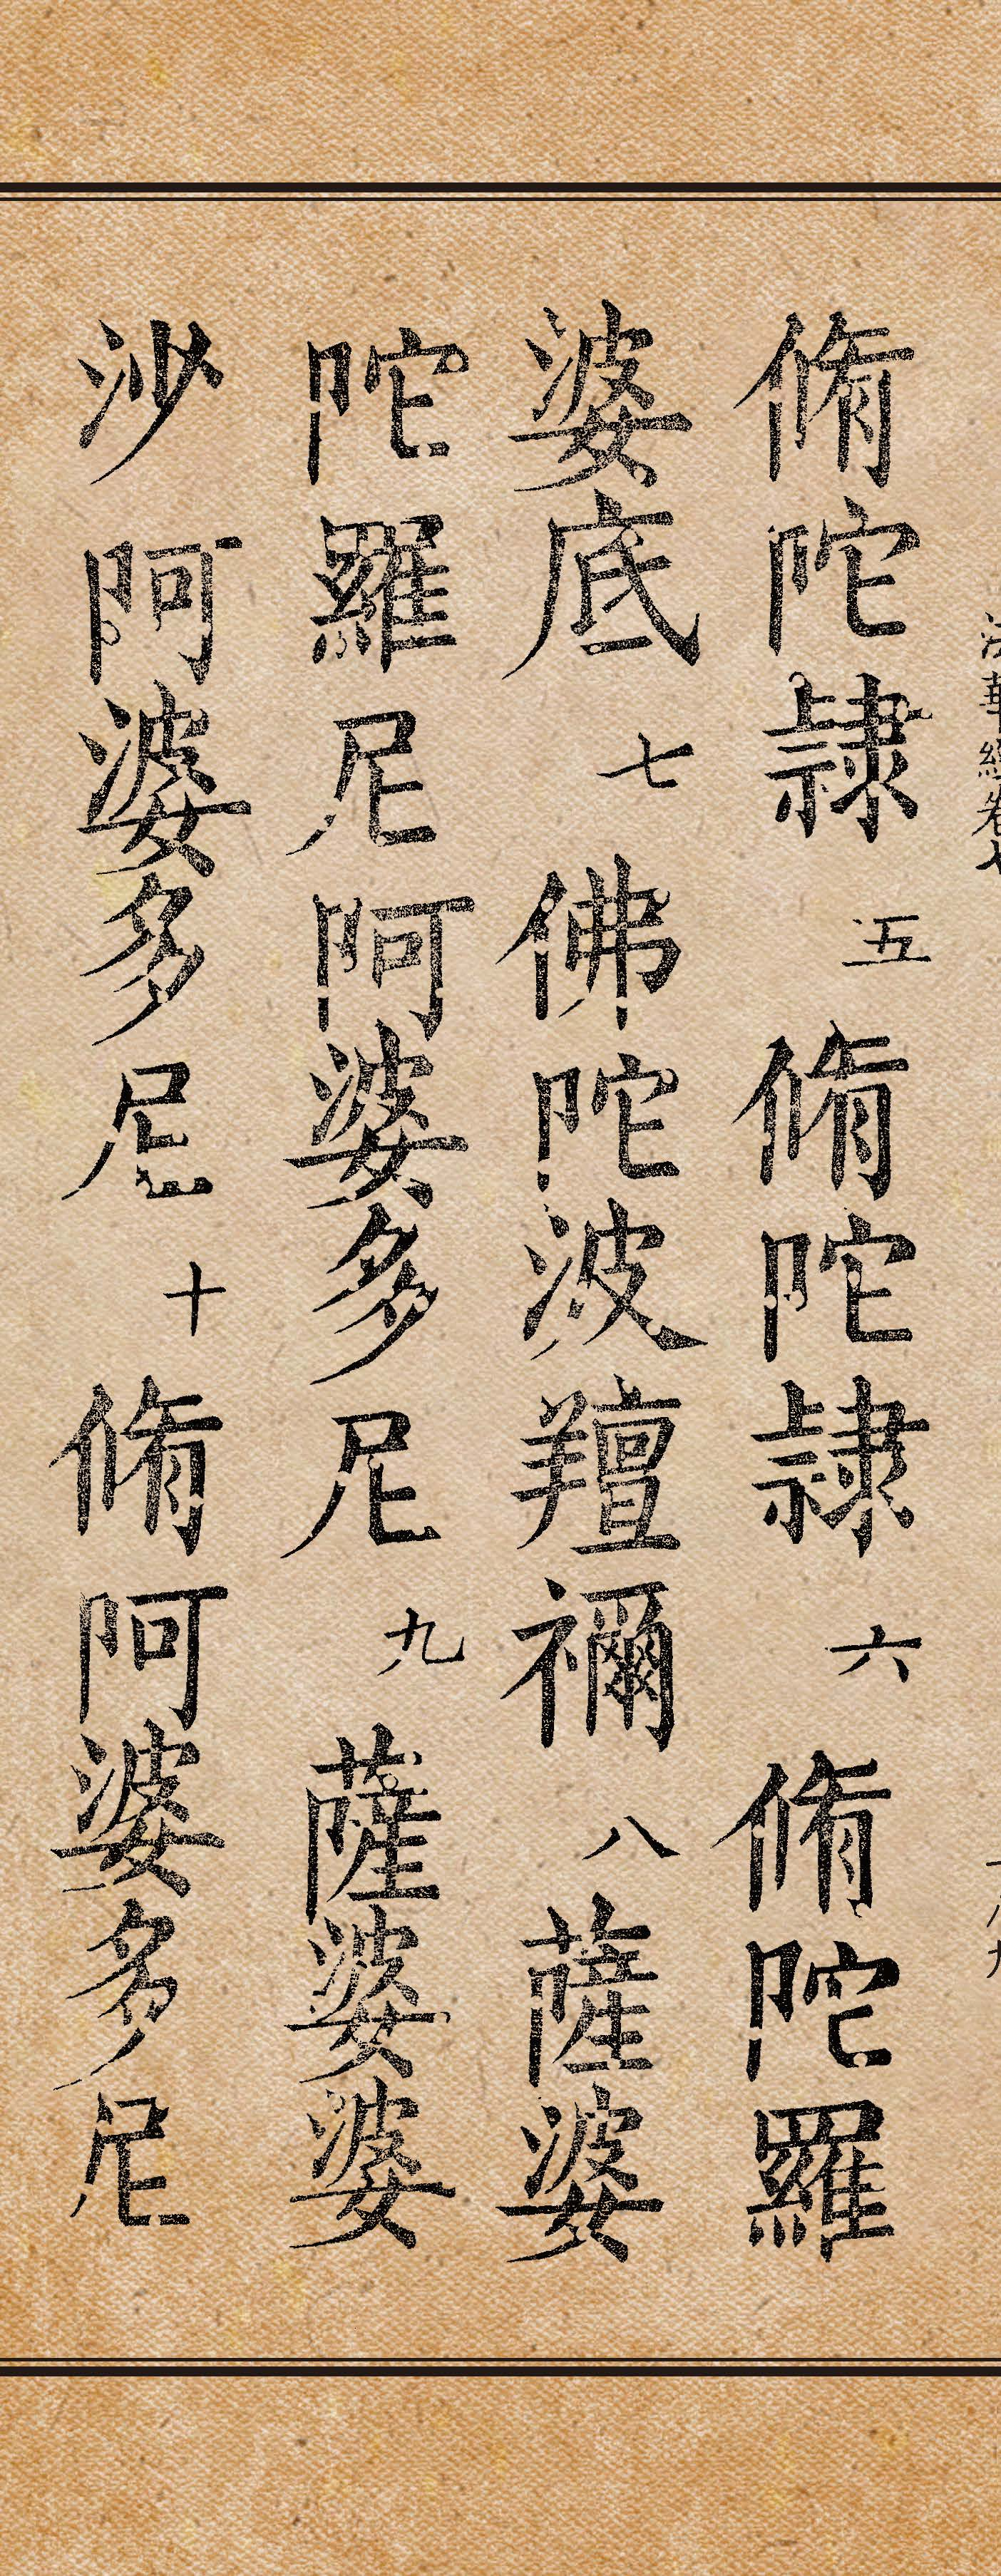 法華經卷七
脩陀隸五脩陀隸六脩陀羅
婆底七佛陀波羶禰八薩婆
陀羅尼阿婆多尼九薩婆婆
沙阿婆多尼十脩阿婆多尼